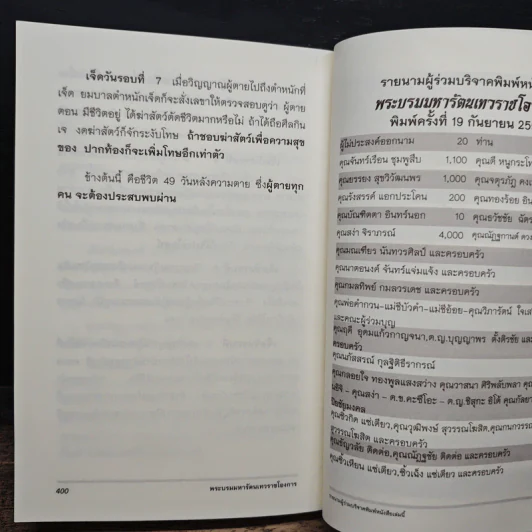 เจ็ดวันรอบที่ 7 เมื่อวิญญาณผู้ตายไปถึงตำหนักที่
เจ็ด ยมบาลตำหนักเจ็ดก็จะสั่งเลขาให้ตรวจสอบดูว่า ผู้ตาย
ตอน มีชีวิตอยู่ ได้ฆ่าสัตว์ตัดชีวิตมากหรือไม่ ถ้าได้ถือศีลกิน
เจ งดฆ่าสัตว์ก็จักระงับโทษ ถ้าชอบฆ่าสัตว์เพื่อความสุข
ของ ปากท้องก็จะเพิ่มโทษอีกเท่าตัว
ข้างต้นนี้ คือชีวิต 49 วันหลังความตาย ซึ่งผู้ตายทุก
คน จะต้องประสบพบผ่าน
400
พระบรมมหารัตนเทวราชโองการ
รายนามผู้ร่วมบริจาคพิมพ์หน
พระบรมมหารัตนเทวราชโอง
พิมพ์ครั้งที่ 19 กันยายน 25
ผู้ไม่ประสงค์ออกนาม 20 ท่าน
คุณจันทร์เรือน ชุมพูสืบ 1,100 คุณดี หนูกระโท
คุณยรรยง สุขวิวัฒนพร 1,000 คุณจตุรภัฎ คงเ
คุณรังสรรค์ แอกประโคน 200 คุณทองร้อย อิน
คุณบัณฑิตดา อินทร์นอก 10 คุณธวัชชัย ฉัตร
คุณสง่า จิราภรณ์ 4,000 คุณณัฏฐกานต์ ดวง
คุณมณเฑียร นันทวรศิลป์ และครอบครัว
คุณนาตอนงค์ จันทร์แจ่มแจ้ง และครอบครัว
คุณกมลทิพย์ กมลวรเดช และครอบครัว
คุณพ่อคำกวน-แม่ชีบัวคำ-แม่ชีอ้อย-คุณวิภารัตน์ ใจเส
และคณะผู้ร่วมบุญ
คุณฤดี อุดมแก้วกาญจนา,ด.ญ.บุญญาพร ตั้งศิรชัย และ
ครอบครัว
คุณนภัสสรณ์ กุลฐิติธีราภรณ์
คุณกลอยใจ ทองพูลแสงสว่าง คุณวาสนา ศิริพลับพลา คุณ
คุณสง่า - ด.ช.คะซึโอะ - ด.ญ.ชิสุทะ อิโต้ คุณกัลยา
ครอบครัว
คุณซิวเหียน แซ่เตียว,ซิ้วเฉ็ง แซ่เตียว และครอบครัว